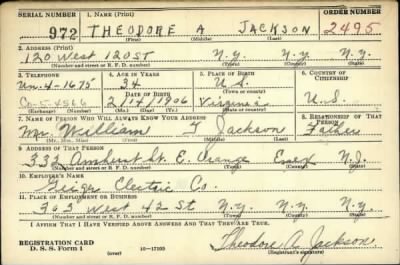 SERIAL NUMBER 1. NAME (Print) ORDER NUMBER
972 THEODORE A JACKSON 2495
(First) (Middle) (Last)
2. ADDRESS (Print)
120 West 120 ST N.Y. N.Y. N.Y.
(Number and street or R. F. D. number) (Town) (County) (State)
3. TELEPHONE 4. AGE IN YEARS 5. PLACE OF BIRTH 6. COUNTRY OF CITIZENSHIP
Un. 4-1675 34 U.S.
DATE OF BIRTH
Co-5-4566 2/14/1906 Virginia U.S.
(Exchange) (Number) (Mo.) (Day) (Yr.) (State or country)
7. NAME OF PERSON WHO WILL ALWAYS KNOW YOUR ADDRESS 8. RELATIONSHIP OF THAT PERSON
Mr. William Jackson Father
(Mr., Mrs., Miss) (First) (Middle) (Last)
9. ADDRESS OF THAT PERSON
332 Amherst St. E. Orange Essex N.J.
(Number and street or R. F. D. number) (Town) (County) (State)
10. EMPLOYER'S NAME
Geiger Electric Co.
11. PLACE OF EMPLOYMENT OR BUSINESS
303 West 42 St N.Y. N.Y. N.Y.
(Number and street or R. F. D. number) (Town) (County) (State)
I AFFIRM THAT I HAVE VERIFIED ABOVE ANSWERS AND THAT THEY ARE TRUE.
REGISTRATION CARD
D. S. S. Form 1 16-17105 Theodore A. Jackson
(over) (Registrant's signature)